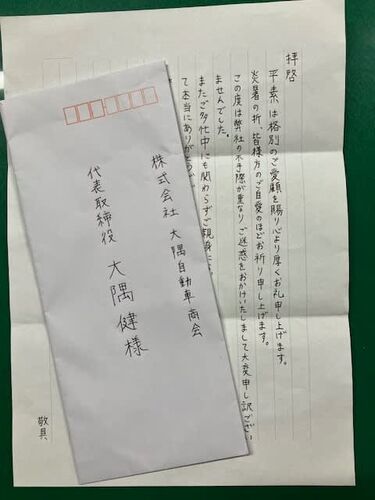 拝啓
平素は格別のご愛顧を賜り心より厚くお礼申し上げます。
炎暑の折、皆様方のご自愛のほどお祈り申し上げます。
この度は弊社の不手際が重なりご迷惑をおかけいたしまして大変申し訳ござい
ませんでした。
またご多忙中にも関わらずご親身に
て本当にありがとう
敬具
株式会社 大隅自動車商会
代表取締役 大隅健様